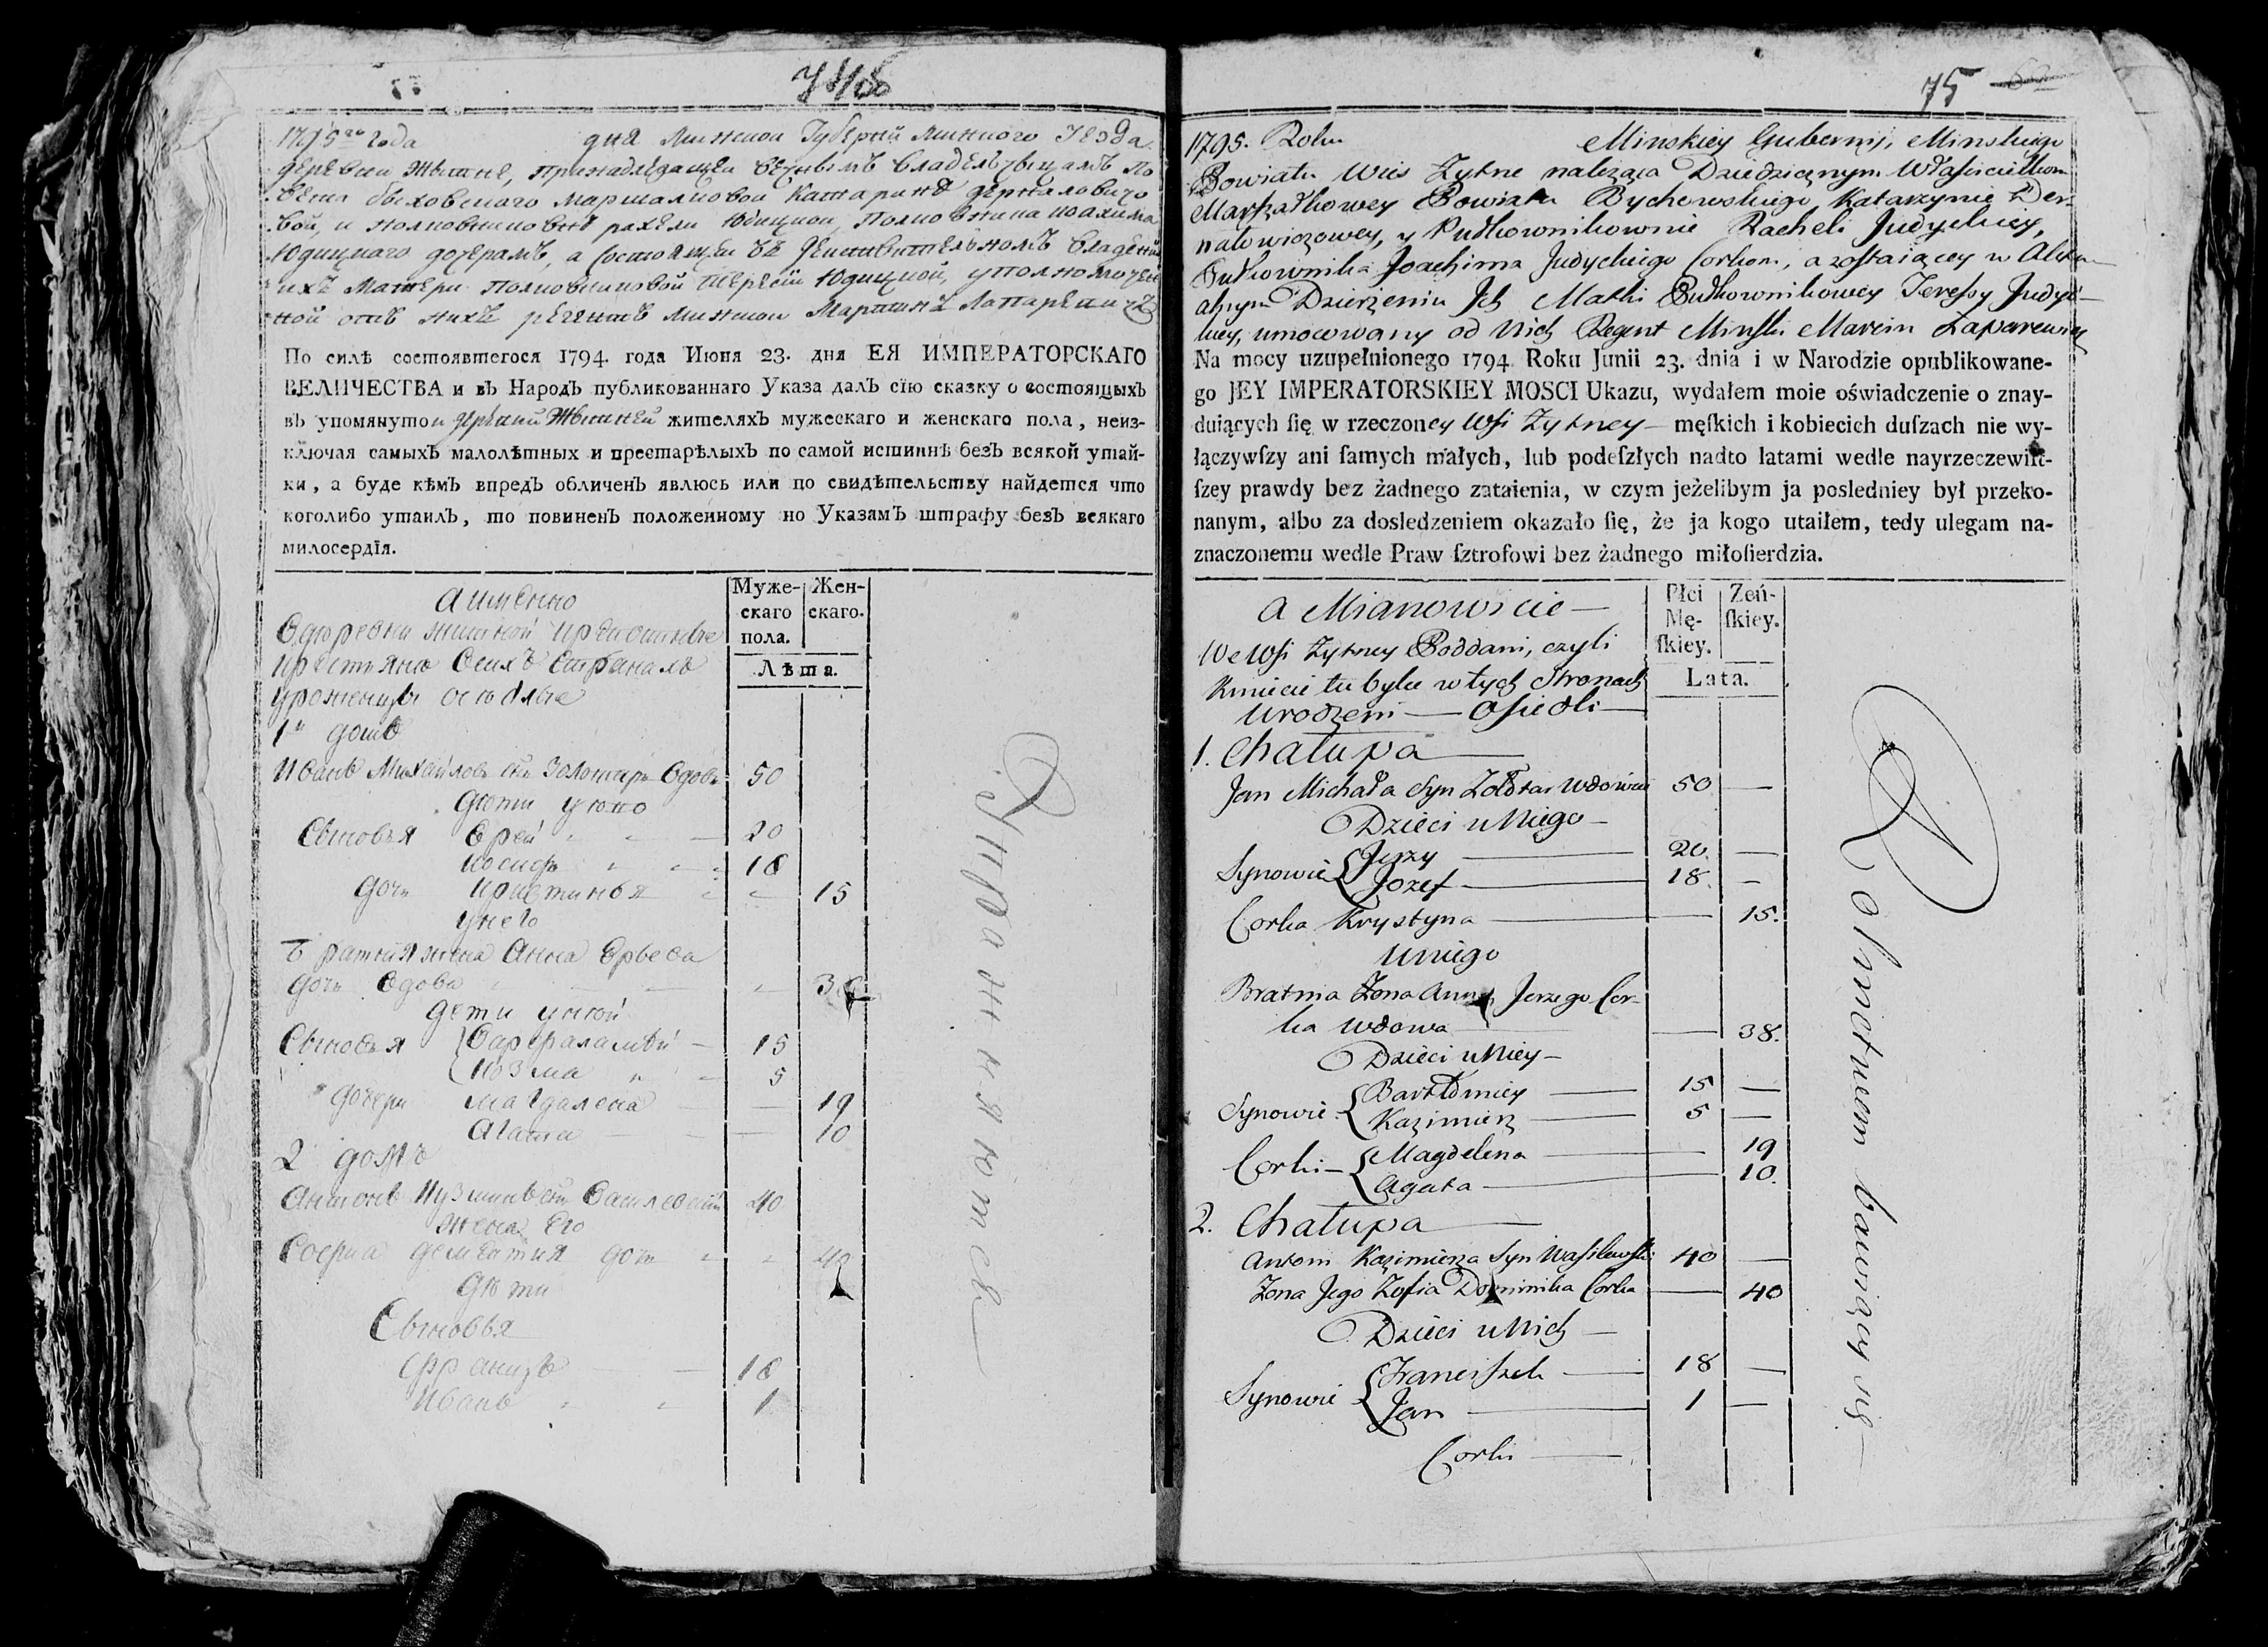 74об
1795го года дня Минской Губернии Минского Уезда
деревни Житне, принадлежащей вечнымъ владельзвицамъ По
вета быховского маршалковой Катарине Дернолович
вой, и полковниковне рахели Юдицкой, Полковника Иоахима
Юдицкого дочерамъ, а состоящей въ действительномъ владении
ихъ Матери Полковниковой Тересы Юдицкой, уполномочен
ной отъ нихъ регентъ Минской Мартинъ Лапаревичъ
По силѣ состоявшегося 1794. года Июня 23. дня ЕЯ ИМПЕРАТОРСКАГО
ВЕЛИЧЕСТВА и въ Народъ публикованнаго Указа далъ сїю сказку о состоящыхъ
въ упомянутой деревни Житней жителяхъ мужескаго и женскаго пола, неиз-
ключая самыхъ малолѣтныхъ и престарѣлыхъ по самой истиннѣ безъ всякой утай-
ки, а буде кѣмъ впредь обличенъ явлюсь или по свидѣтельству найдется что
коголибо утаилъ, то повиненъ положенному по Указамъ штрафу безъ всякаго
милосердїя.
а именно
Муже-
скаго
пола.
Жен-
скаго.
Лѣта.
крестьяне
уроженцы оседлые
1й домъ
Иванъ Михайловъ сынъ Золотарь вдовъ 50
дети у него
Сыновья Ерей 20
Иосифъ 18
дочь Кристинья 15
у него
Братния жена Анна Ерьева
дочь вдова 38
дети у ней
Сыновья Варфаламей 15
Козма 5
дочери Магдалена 19
Агата 10
2 домъ
Антонъ Кузминъ сынъ Василевский 40
жена его
Софиа дочь 40
дети
Сыновья
Францъ 18
Иванъ 1
75
1795. Roku Minskiey Gubernij, Minskiego
Powiatu Wies Żytne należąca Dziedzicznym Właścicielkom
Marszałkowey Powiatu Bychowskiego Katarzynie Der-
nałowiczowey, y Pułkownikownie Racheli Judyckiey,
Pułkownika Joachima Judyckiego Corkom, a zostaiącey w Aktu-
alnym Dzierzeniu Jch Matki Pułkownikowey Teressy Judyc-
kiey, umocowany od Nich Regent Minski Marcin Łaparewicz
Na mocy uzupełnionego 1794. Roku Junii 23. dnia i w Narodzie opublikowane-
go JEY IMPERATORSKIEY MOSCI Ukazu, wydałem moie oświadczenie o znay-
duiących ſię w rzeczoney Wsi Żytney męſkich i kobiecich duſzach nie wy-
łączywſzy ani ſamych małych, lub podeſzłych nadto latami wedle nayrzeczewiſt-
ſzey prawdy bez żadnego zataienia, w czym jeżelibym ja posledniey był przeko-
nanym, albo za dosledzeniem okazało ſię, że ja kogo utaiłem, tedy ulegam na-
znaczonemu wedle Praw ſztrofowi bez żadnego miłoſierdzia.
a Mianowicie
Płci
Mę-
ſkiey.
Zeń-
ſkiey.
Lata.
We Wsi Żytney Poddani, czyli
Kmiecie tu bylce w tych Stronach
Urodzeni Osiedli
1. Chałupa
Jan Michała Syn Zołotar Wdowiec 50 —
Dzieci u Niego
Synowie Jerzy 20. —
Jozef 18. —
Corka Krystyna — 15.
u niego
Bratnia Żona Anna Jerzego Cor-
ka Wdowa — 38.
Dzieci u Niey
Synowie Bartłomiey 15 —
Kazimierz 5 —
Corki Magdelena — 19
Agata — 10.
2. Chałupa
Antoni Kazimierza Syn Wasilewski 40 —
Żona Jego Zofia Dominika Corka — 40
Dzieci u Nich
Synowie Franciszek 18 —
Jan 1 —
Corki